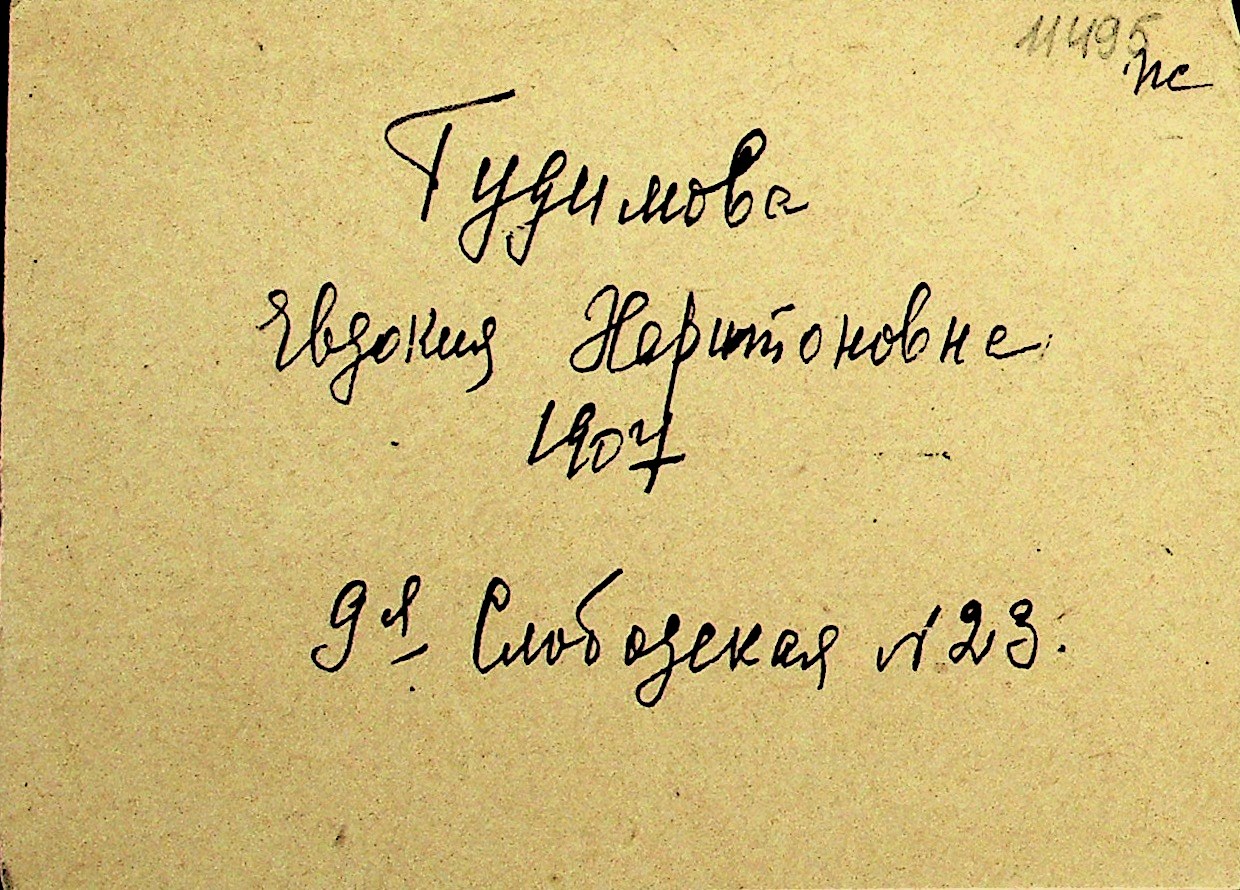 11495
пс
Гудимова
Евдокия Харитоновна
1907
9я Слободская №23.